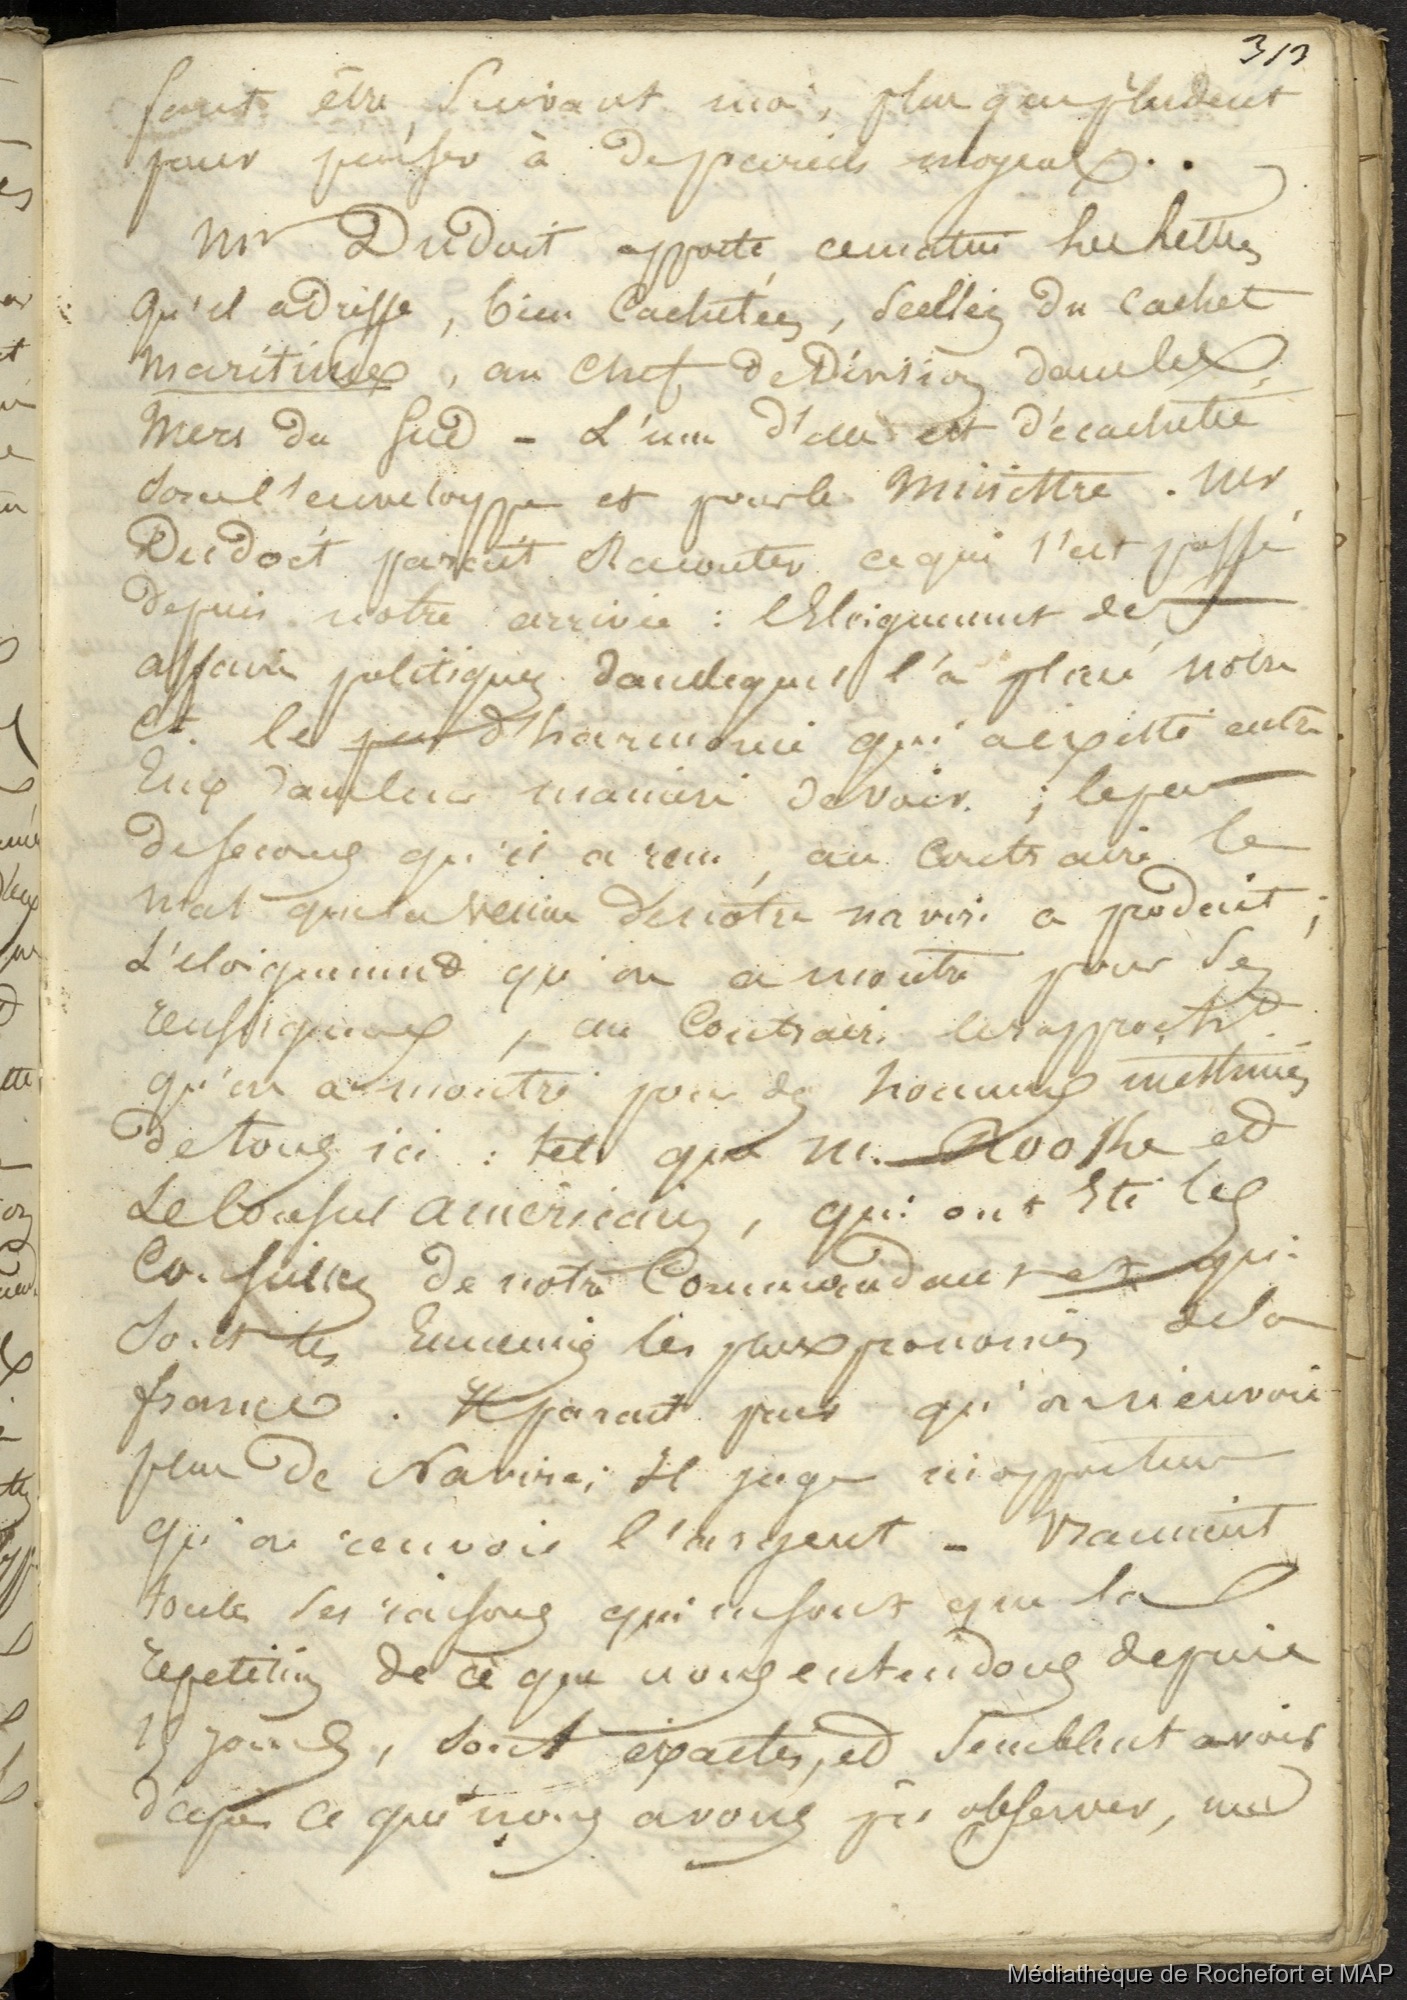 313
faut être, suivant moi, plus que prudent
pour penser à de pareils moyens..
Mr Dudoit apporte, ce matin les lettres
qu'il adresse, bien cachetées, scellées du cachet
maritime, au chef de Division dans les
Mers du Sud - L'une d'elle est décachetée
sous l'enveloppe et pour le Ministre. Mr
Dudoit parait Raconter ce qui s'est passé
depuis notre arrivée : l'Eloignement des
affaires politiques dans lequel l'a placé notre
Ct. le peu d'harmonie qui a existé entre
Eux dans leur manière de voir ; le peu
de secours qu'il a reçu, au contraire le
mal que la venue de notre navire a produit ;
L'eloignement qu'on a montré pour ses
renseignemens, au Contraire le rapprocht
qu'on a montré pour des hommes mesestimés
de tous ici : tels que M. Rooke et
Le Consul américain, qui ont Eté les
Conseillers de notre Commandant et qui
sont les Ennemis les plus prononcés de la
france. Il parait peur qu'on n'envoie
plus de Navires; Il juge inopportun
qu'on renvoie l'argent - Vraiment
toutes ses raisons qui ne sont que la
repetition de ce que nous entendons depuis
15 jours, sont exactes, et semblent avoir
d'après ce que nous avons pu observer, un